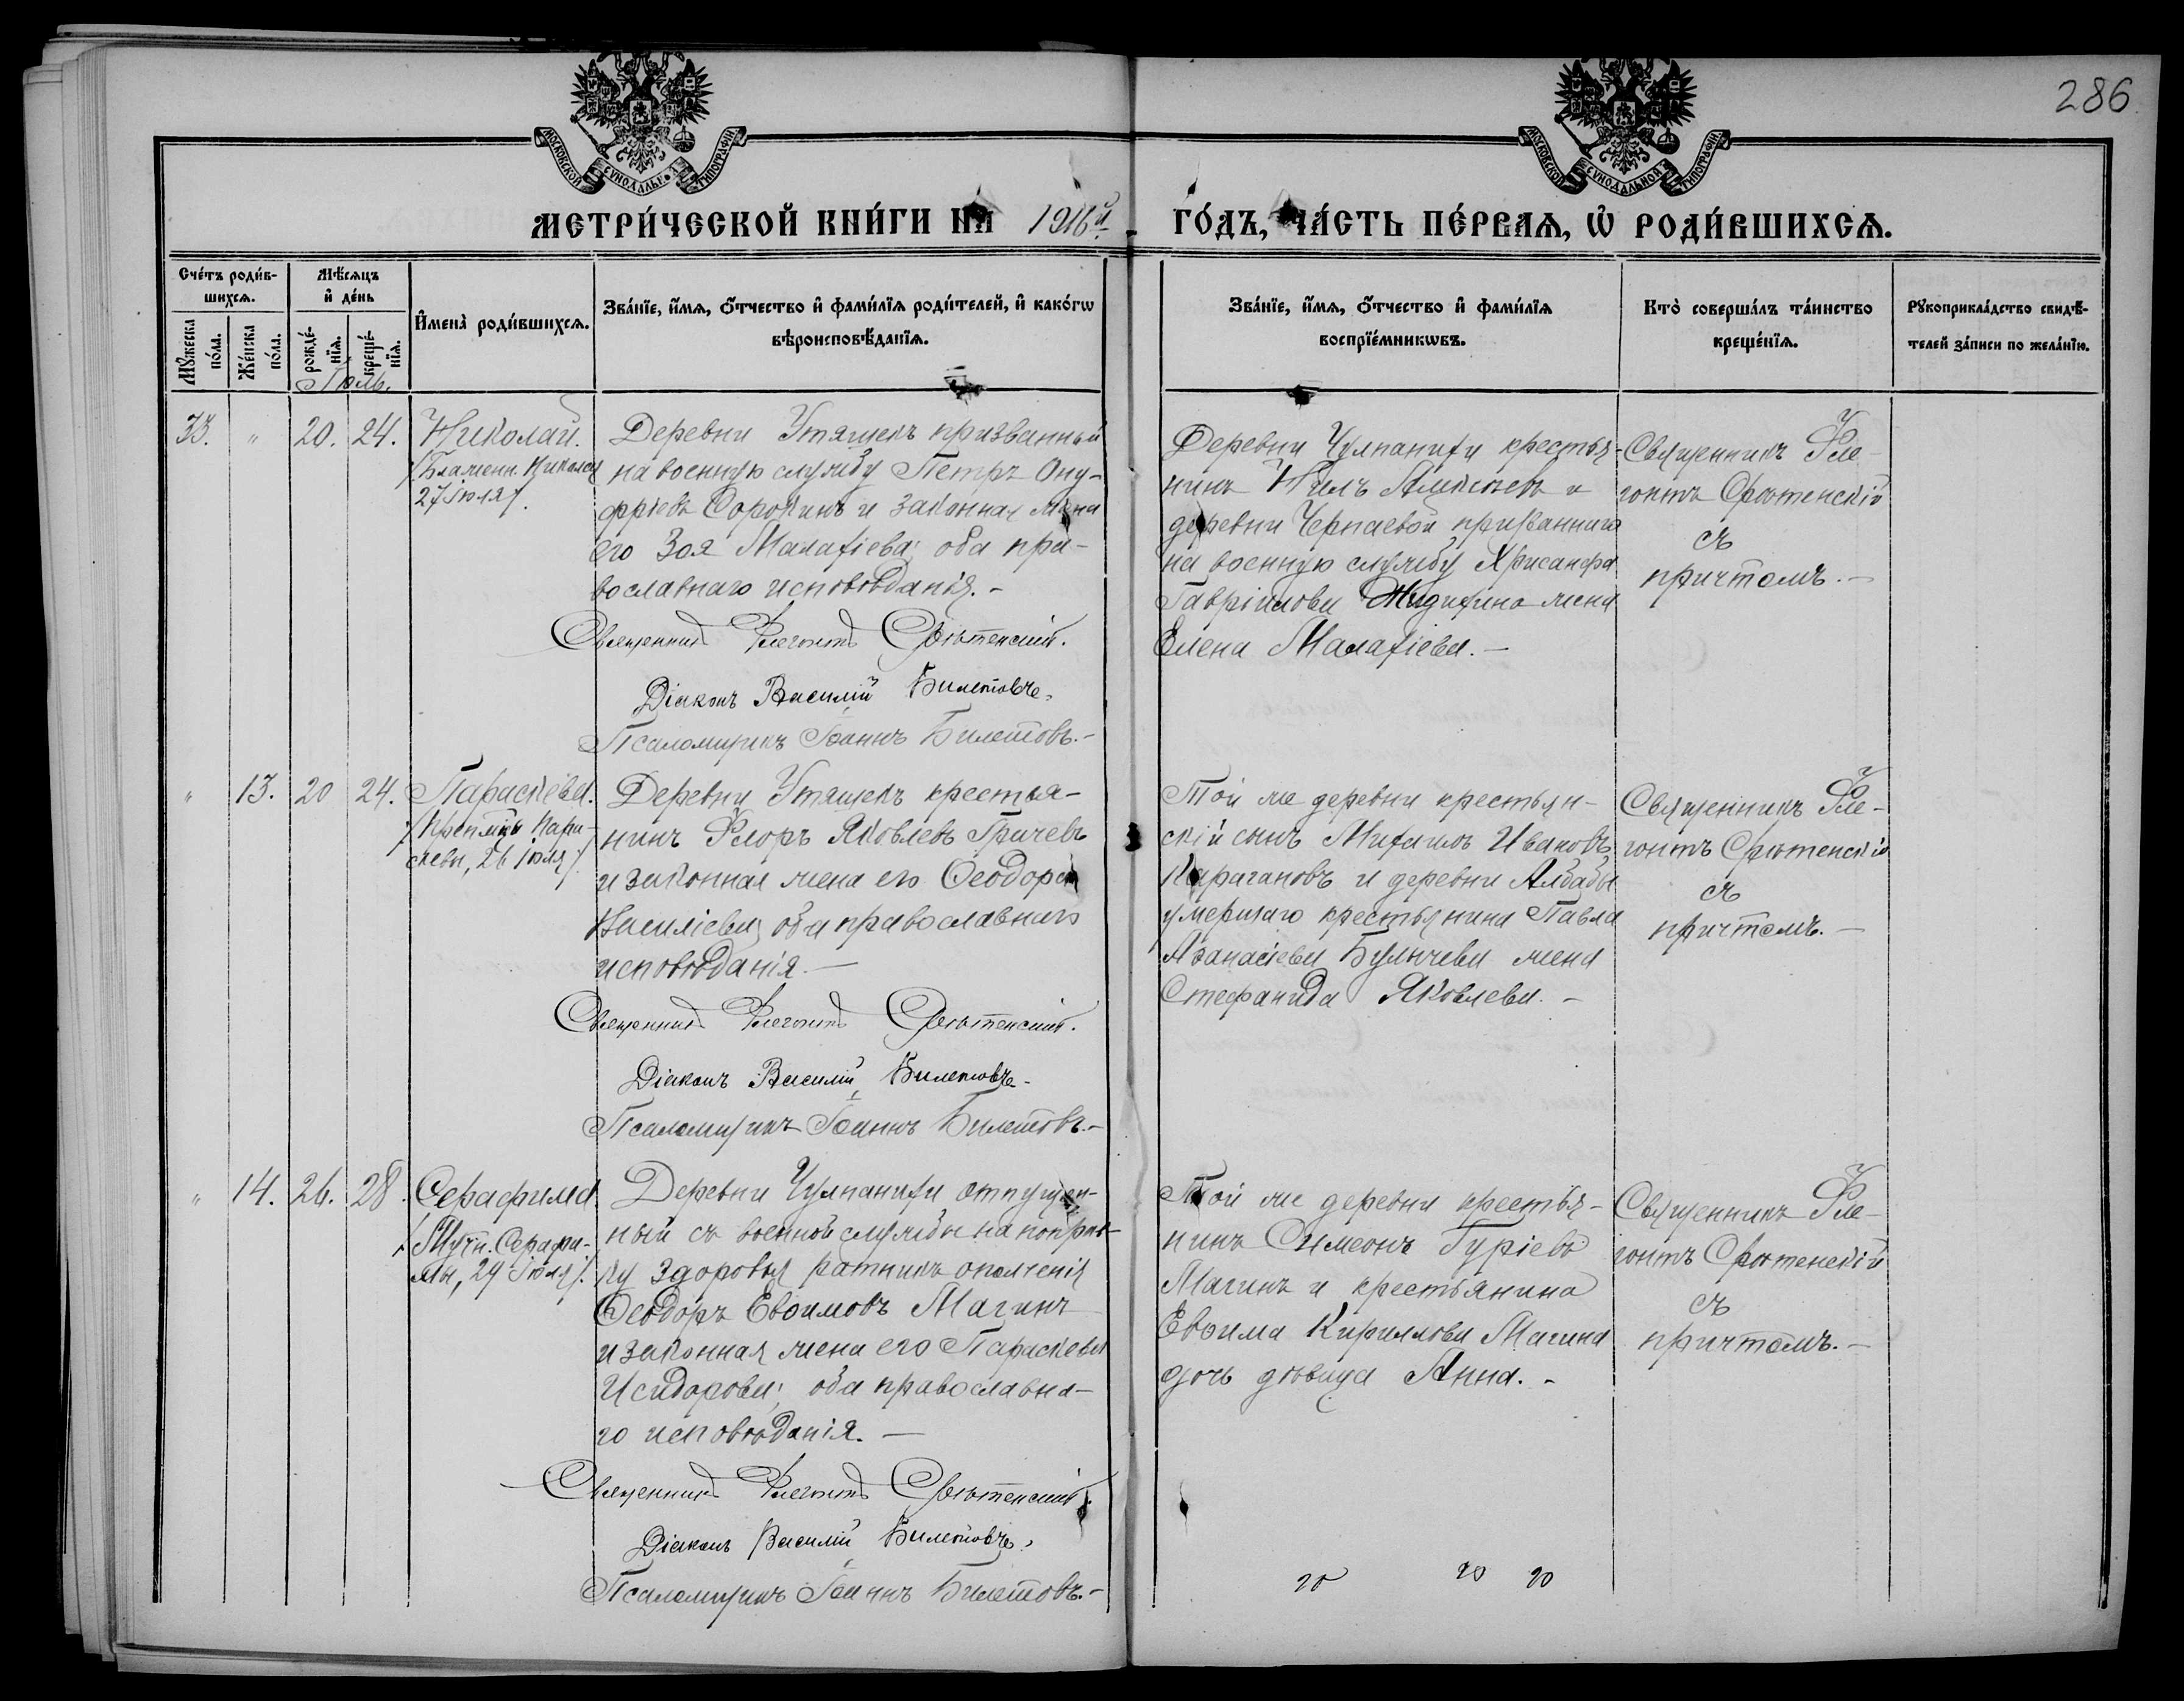 286
МОСКОВСКОЙ СУНОДАЛЬНОЙ ТИПОГРАФІИ
МОСКОВСКОЙ СУНОДАЛЬНОЙ ТИПОГРАФІИ
МЕТРИ́ЧЕСКОЙ КНИ́ГИ НА 1916й ГО́ДЪ, ЧА́СТЬ ПЕ́РВАѦ, Ѡ РОДИ́ВШИХСѦ.
Сче́тъ роди́в-
шихсѧ.
Мѣ́сѧцъ
и҆ де́нь
Мꙋ́жеска
по́ла.
Же́нска
по́ла.
рожде́-
нїѧ.
креще́-
нїѧ.
И҆мена̀ роди́вшихсѧ.
Зва́нїе, и҆́мѧ, ѻ҆́тчество и҆ фами́лїѧ роди́телей, и҆ како́гѡ
вѣроисповѣ́данїѧ.
Зва́нїе, и҆́мѧ, ѻ҆́тчество и҆ фами́лїѧ
воспрїе́мникѡвъ.
Кто̀ соверша́лъ та́инство
креще́нїѧ.
Рꙋкоприкла́дство свидѣ́-
телей за́писи по жела́нїю.
Іюль.
33. " 20. 24. Николай.
/Блаженн. Николая
27 Іюля/.
Деревни Утяшекъ призванный
на военную службу Петръ Ону-
фріевъ Сорокинъ и законная жена
его Зоя Малахіева; оба пра-
вославнаго исповѣданія.-
Священникъ Флегонтъ Срѣтенскій.
Діаконъ Василій Билетовъ.
Псаломщикъ Іоаннъ Билетовъ.-
Деревни Чулпанихи крестья-
нинъ Нилъ Алексѣевъ и
деревни Черпаевой призваннаго
на военную службу Хрисанфа
Гавріилова Жидихина жена
Елена Малахіева.-
Священникъ Фле-
гонтъ Срѣтенскій
съ
причтомъ.-
" 13. 20 24. Параскева.
/Препмцы Пара-
скевы, 26 Іюля/.
Деревни Утяшекъ крестья-
нинъ Флоръ Яковлевъ Грачевъ
и законная жена его Ѳеодора
Василіева; оба православнаго
исповѣданія.-
Священникъ Флегонтъ Срѣтенскій.
Діаконъ Василій Билетовъ.
Псаломщикъ Іоаннъ Билетовъ.-
Той же деревни крестьян-
скій сынъ Михаилъ Ивановъ
Карагановъ и деревни Албабы
умершаго крестьянина Павла
Аѳанасіева Булычева жена
Стефанида Яковлева.-
Священникъ Фле-
гонтъ Срѣтенскій
съ
причтомъ.-
" 14. 26. 28. Серафима
/Мучн. Серафи-
мы, 29 Іюля/.
Деревни Чулпанихи отпущен-
ный съ военной службы на поправ-
ку здоровья ратникъ ополченія
Ѳеодоръ Евѳимовъ Магинъ
и законная жена его Параскева
Исидорова; оба православна-
го исповѣданія.-
Священникъ Флегонтъ Срѣтенскій.
Діаконъ Василій Билетовъ.
Псаломщикъ Іоаннъ Билетовъ.-
Той же деревни крестья-
нинъ Симеонъ Гуріевъ
Магинъ и крестьянина
Евѳима Кириллова Магина
дочь дѣвица Анна.-
Священникъ Фле-
гонтъ Срѣтенскій
съ
причтомъ.-
20 20 20